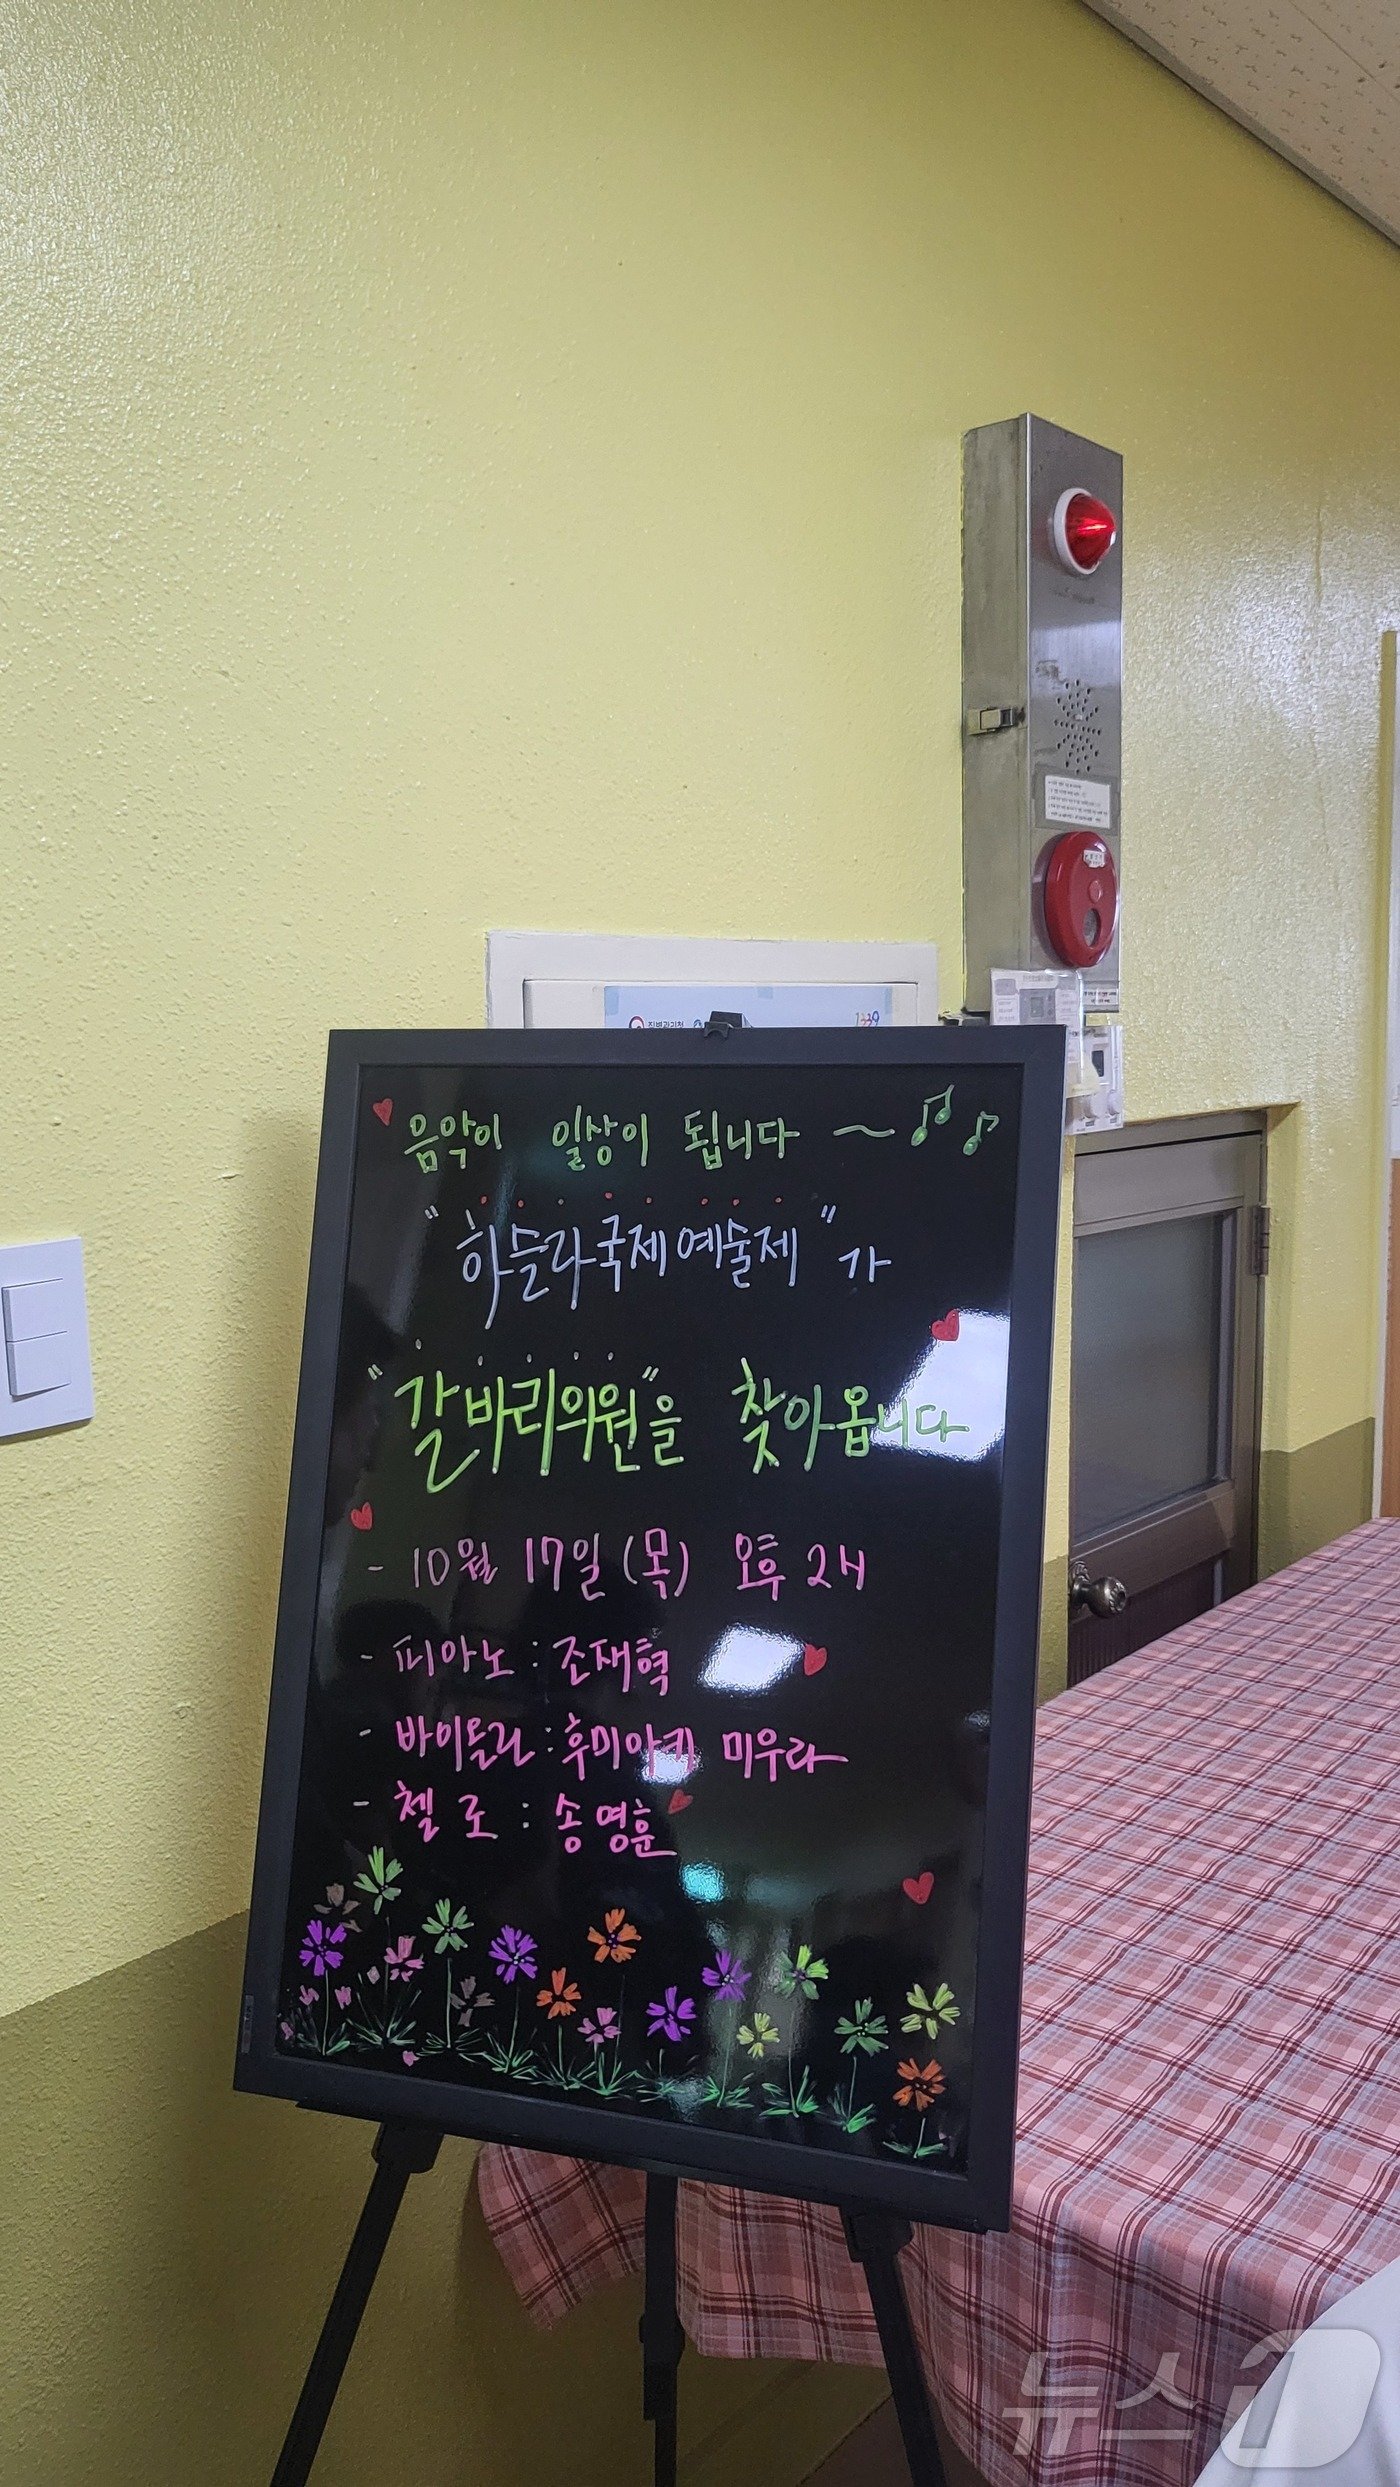 음악이 일상이 됩니다 ~
"하슬라국제예술제"가
"갈바리의원"을 찾아옵니다
- 10월 17일 (목) 오후 2시
- 피아노 : 조재혁
- 바이올린 : 후미아키 미우라
- 첼로 : 송영훈
질병관리청
1339
뉴스1